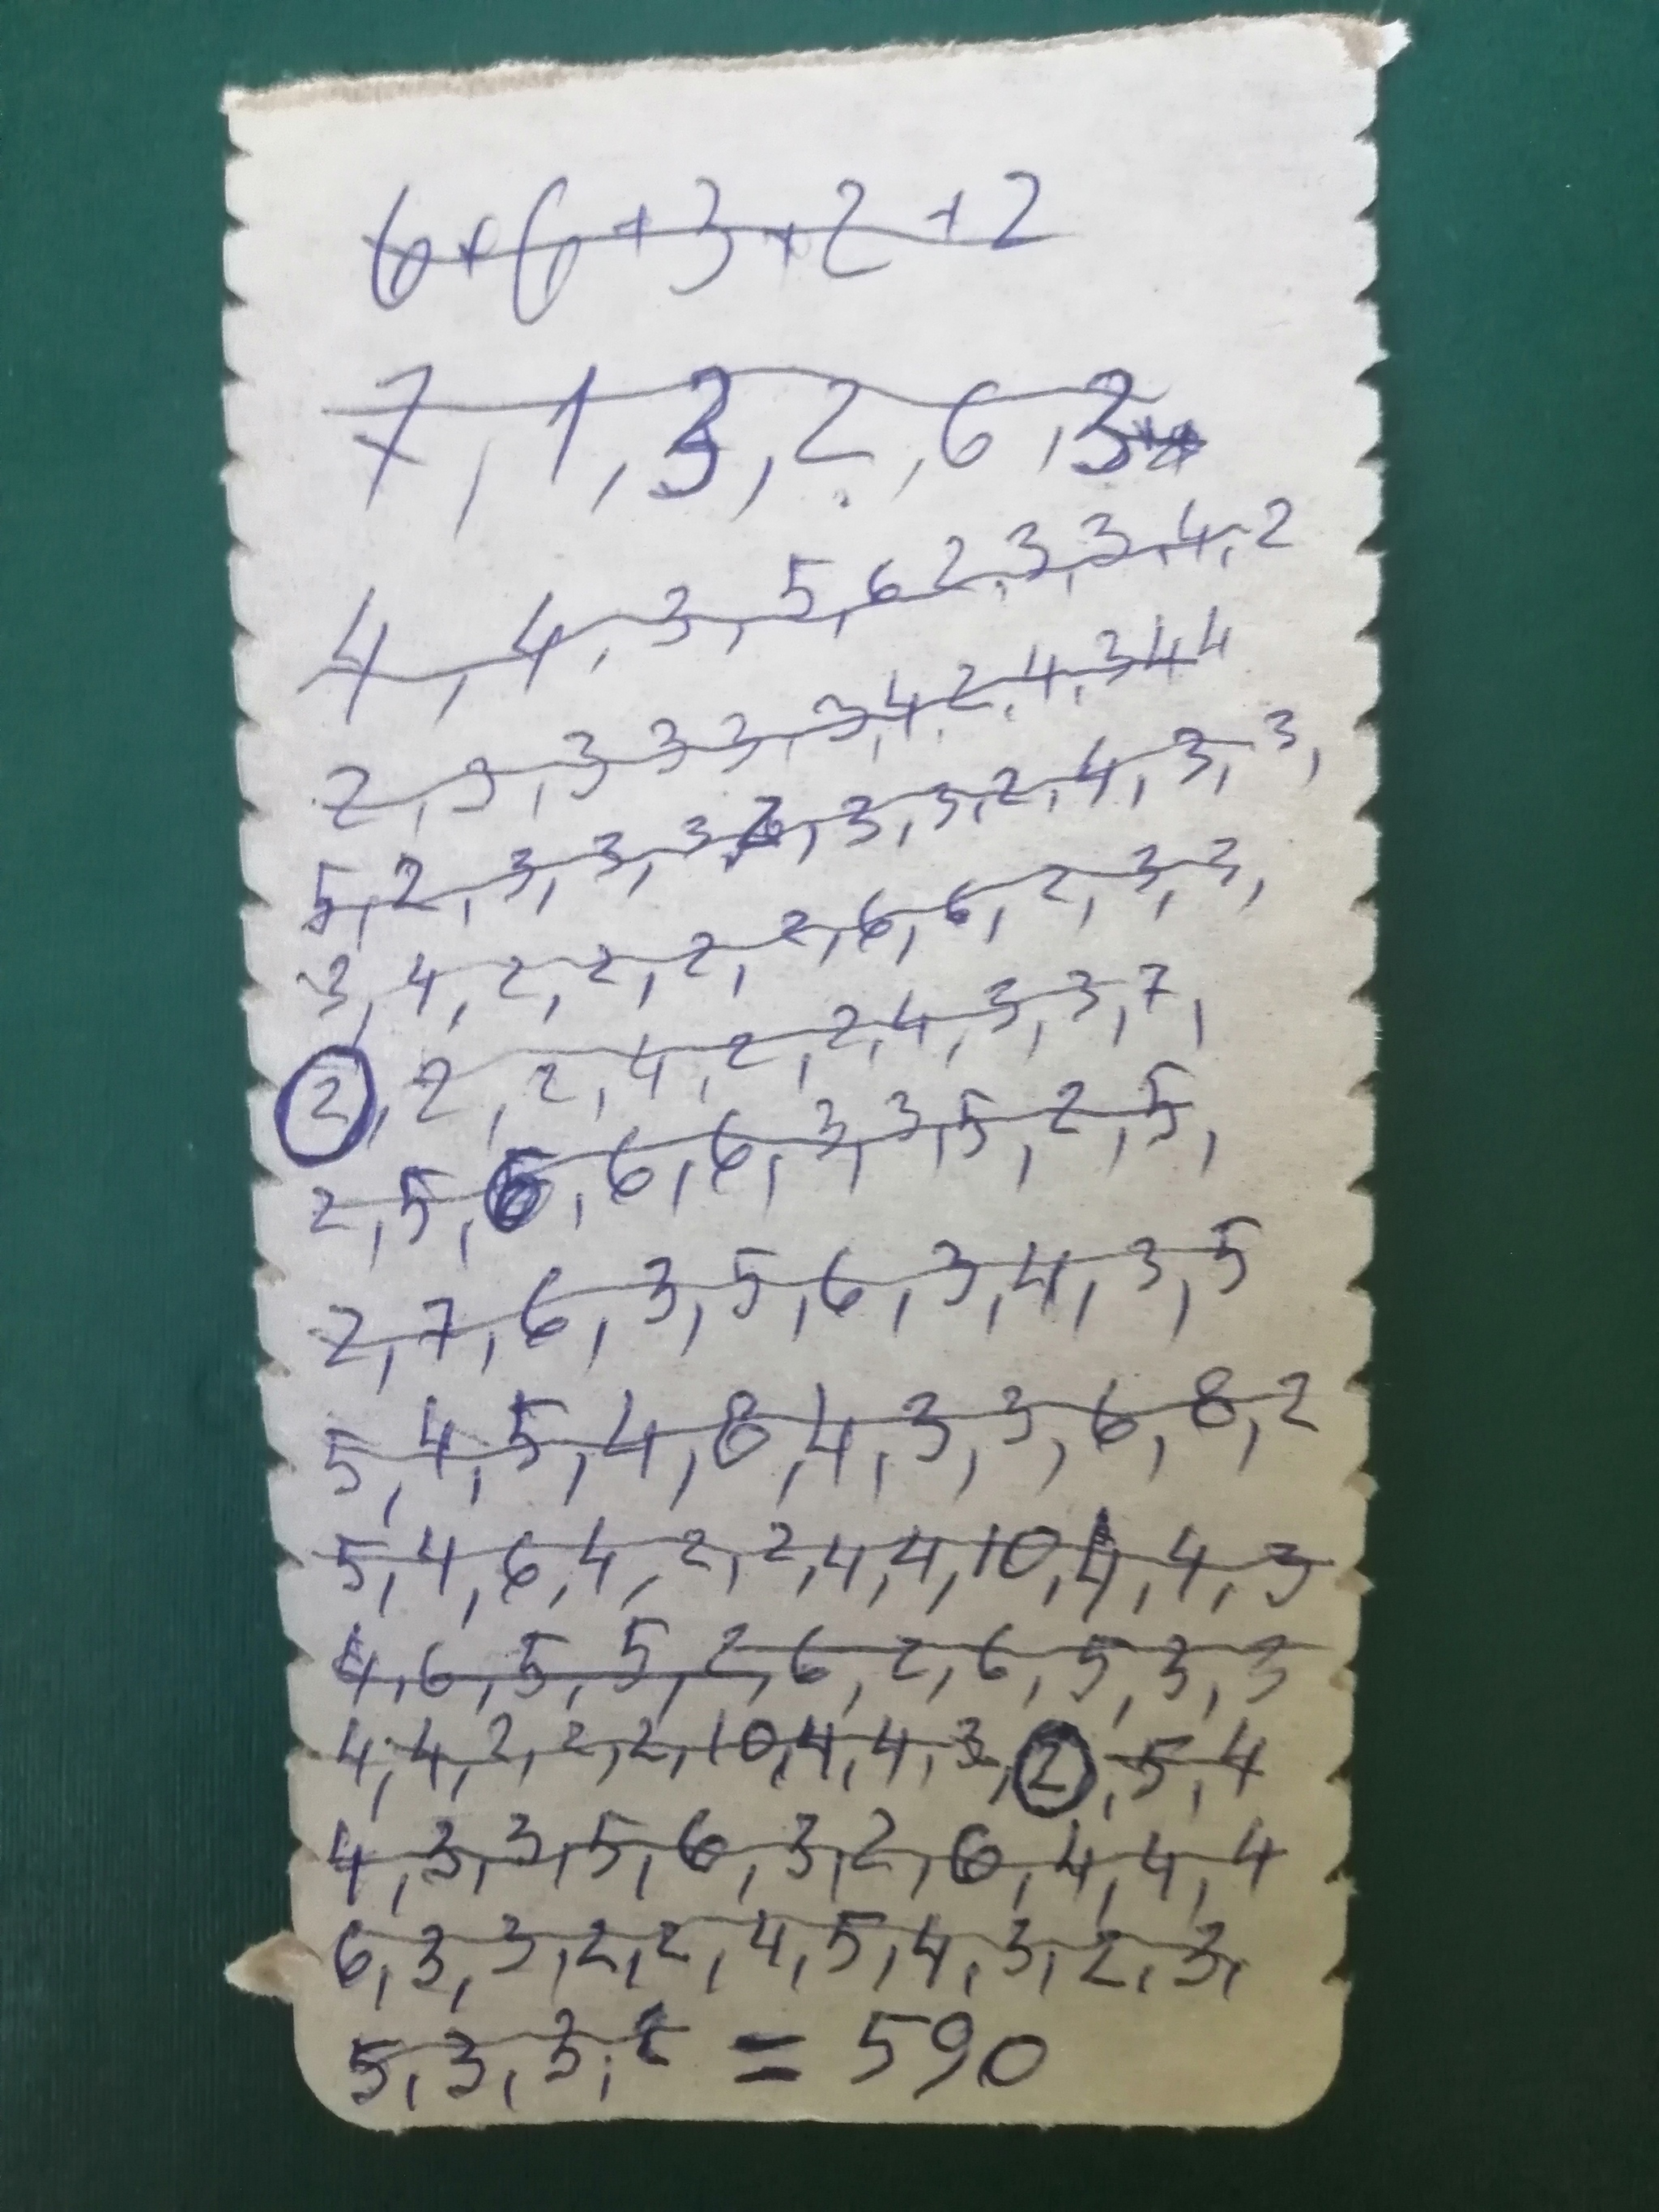 6+6+3+2+2
7,1,3,2,6,3
4,4,3,5,6,2,3,3,4,2
2,3,3,3,3,3,4,2,4,3,4,4
5,2,3,3,3,3,3,2,4,3,3,
3,4,2,2,2,2,6,6,2,3,3,
2,2,2,4,2,2,4,3,3,7,
2,5,6,6,6,3,3,5,2,5,
2,7,6,3,5,6,3,4,3,5
5,4,5,4,8,4,3,3,6,8,2
5,4,6,4,2,2,4,4,10,4,4,3
4,6,5,5,2,6,2,6,5,3,3
4,4,2,2,2,10,4,4,3,2,5,4
4,3,3,5,6,3,2,6,4,4,4
6,3,3,2,2,4,5,4,3,2,3,
5,3,3,2 = 590